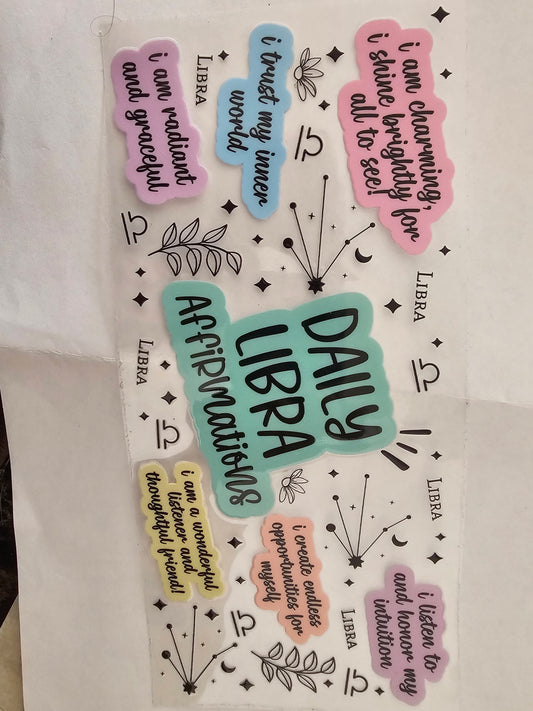 i am charming,
i shine brightly for
all to see!
Libra
i trust my inner
world
Libra
i am radiant
and graceful
Libra
DAILY
LIBRA
AFFIRMATIONS
Libra
i listen to
and honor my
intuition
Libra
i create endless
opportunities for
myself
i am a wonderful
listener and
thoughtful friend!